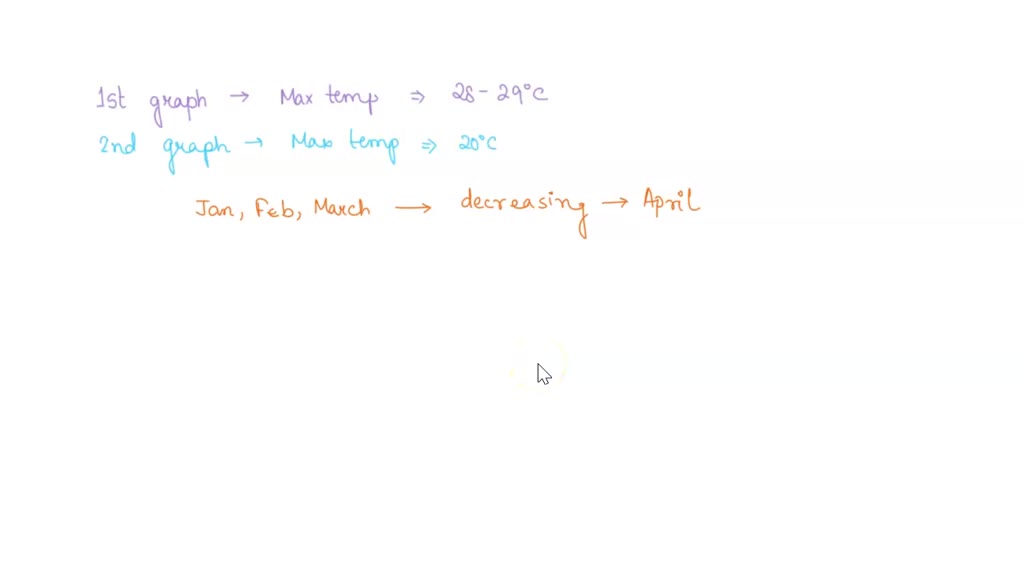 1st graph → Max temp ⇒ 28 - 29°C
2nd graph → Max temp ⇒ 20°C
Jan, Feb, March → decreasing → April